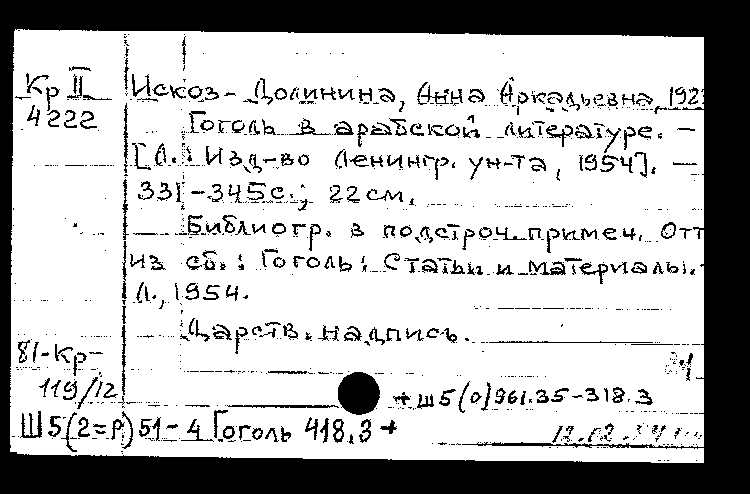 Кр II Искоз-Долинина, Анна Аркадьевна, 192
4222 Гоголь в арабской литературе. —
[Л.: Изд-во Ленингр. ун-та, 1954]. —
331-345с.; 22см.
Библиогр. в подстроч. примеч. Отт
из сб.: Гоголь: Статьи и материалы.
Л., 1954.
Дарств. надпись.
81-Кр-
119/12 + Ш5(0)961.35-318.3
Ш5(2=Р)51-4 Гоголь 418.3+